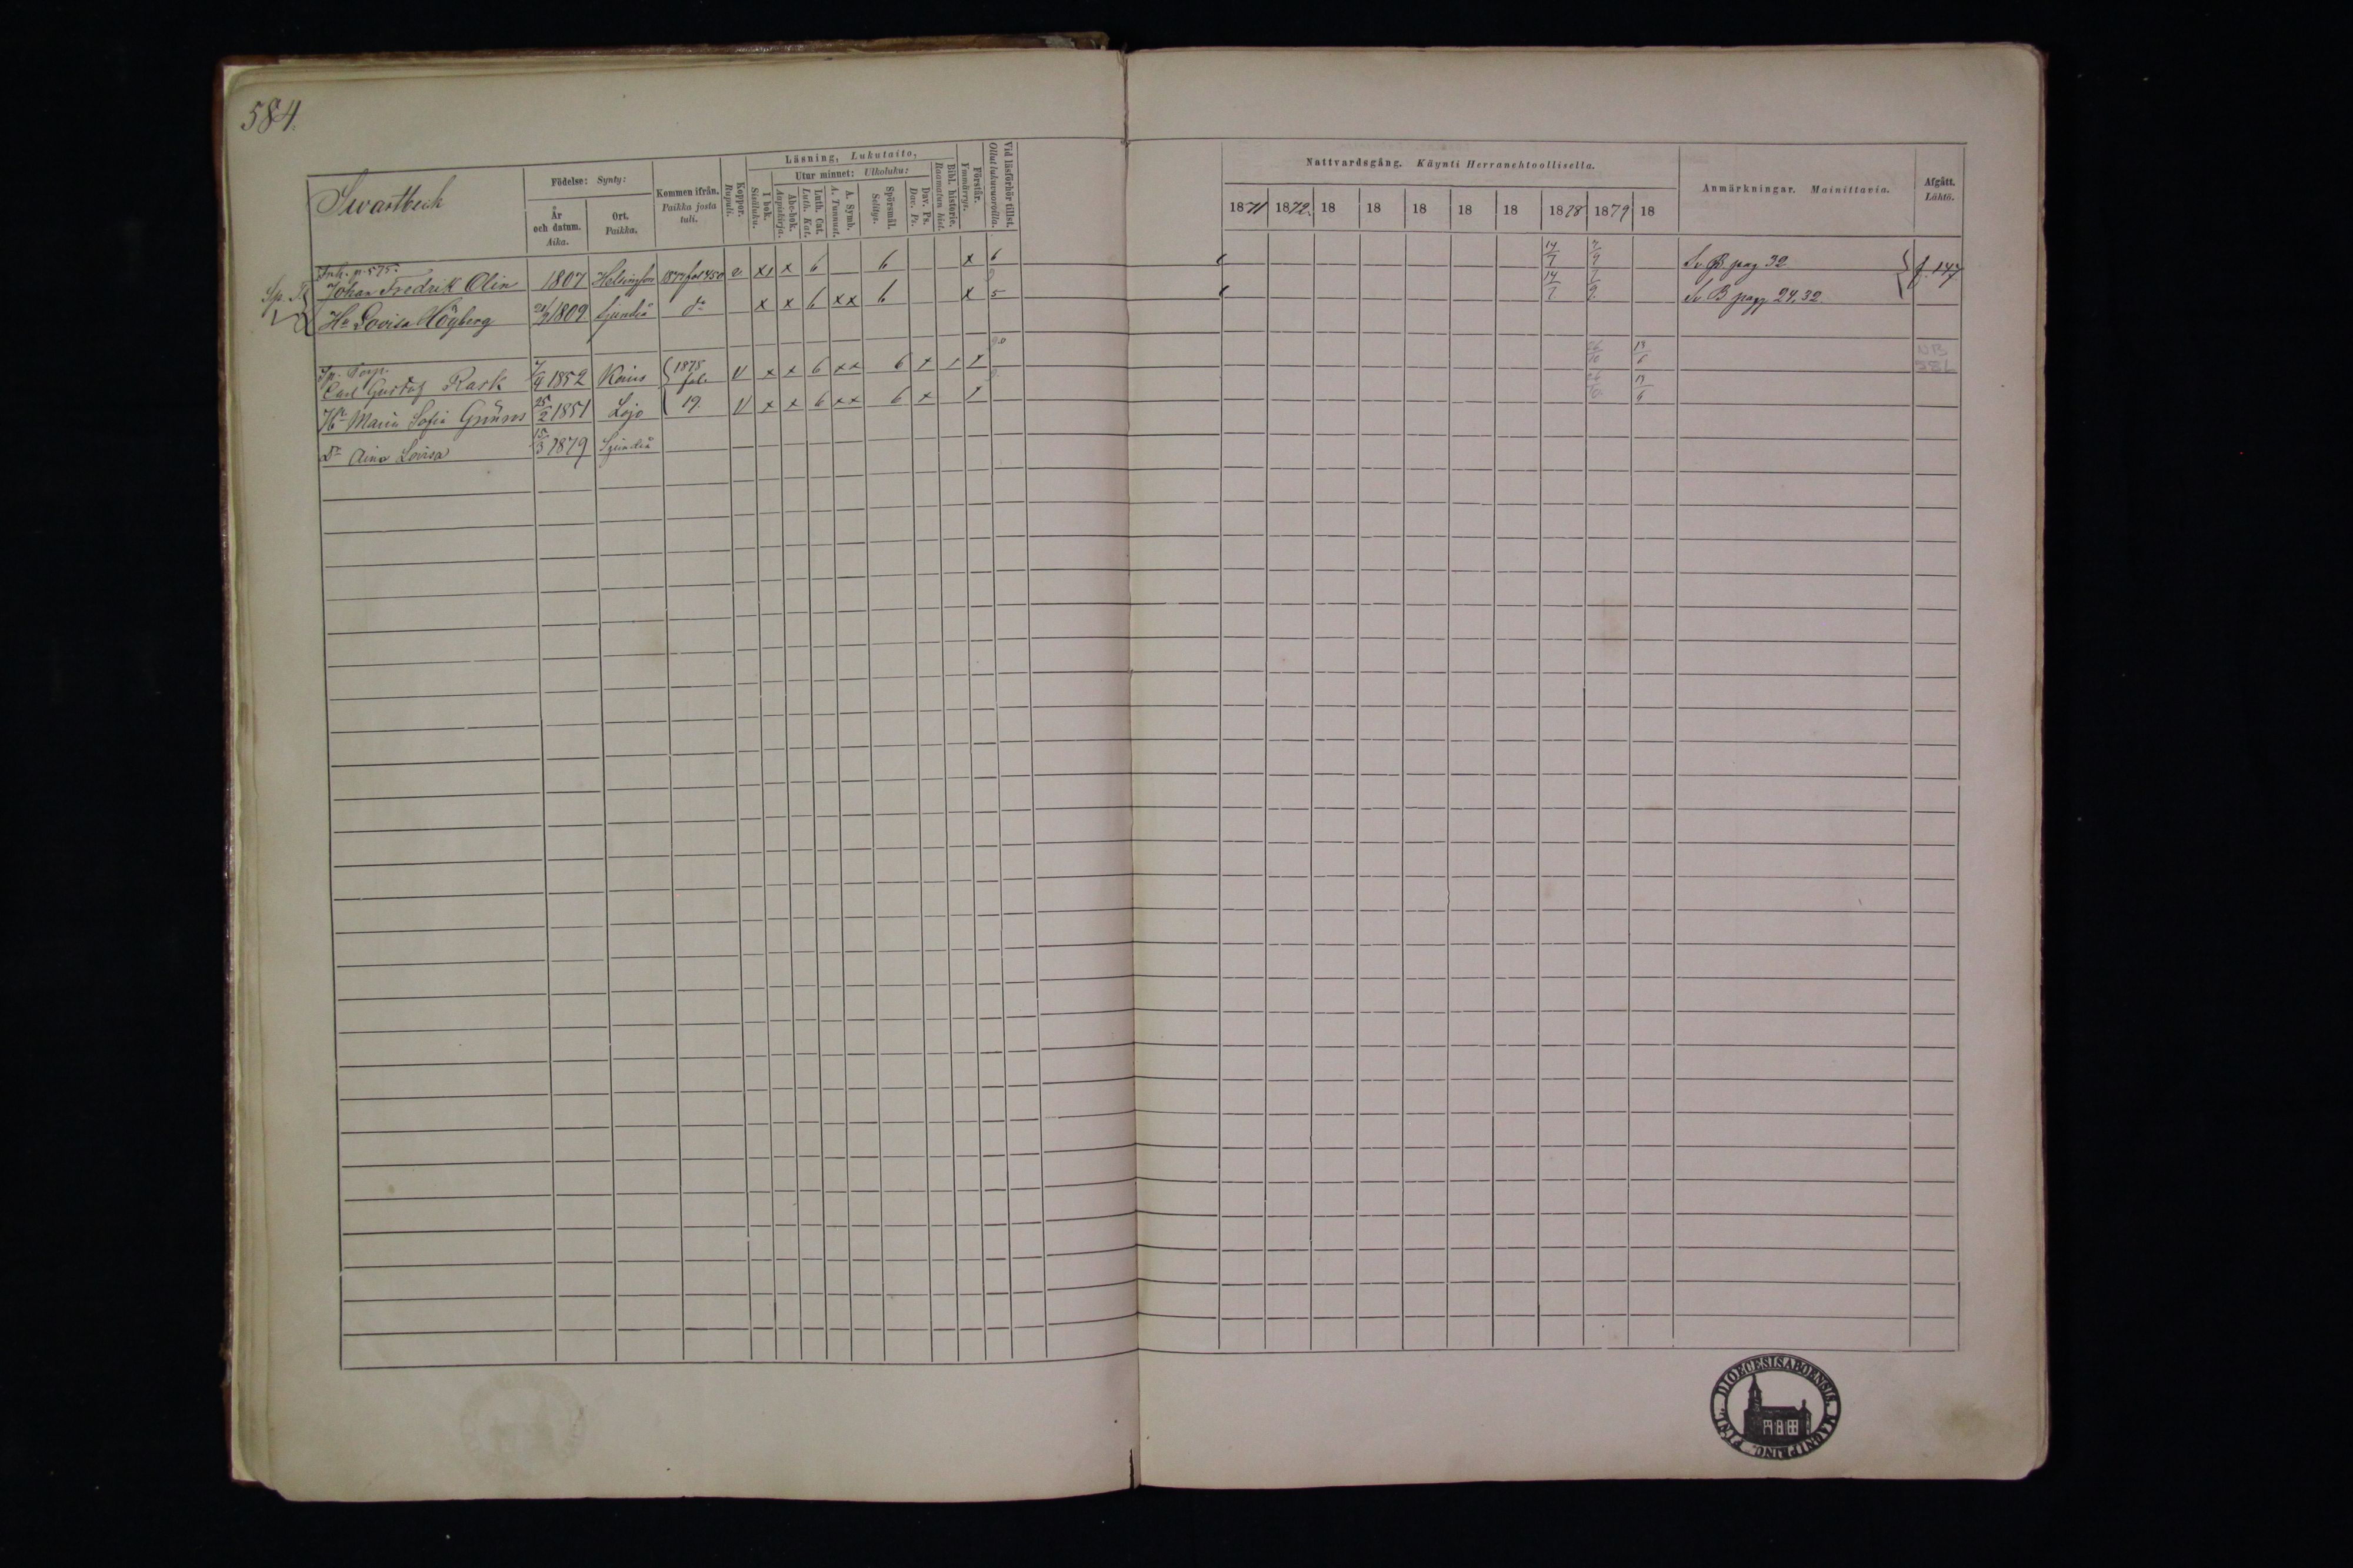 584.
Swartbeck
Födelse: Synty:
År och datum. Aika.
Ort. Paikka.
Kommen ifrån. Paikka josta tuli.
Koppor. Rupuli.
Läsning, Lukutaito,
I bok. Sisäluku.
Utur minnet: Ulkoluku:
Abc-bok. Aapiskirja.
Luth. Cat. Luth. Kat.
A. Symb. A. Tunnust.
Spörsmål. Selitys.
Dav. Ps. Dav. Ps.
Bibl. historie. Raamatun hist.
Förstår. Ymmärrys.
Vid läsförhör tillst. Ollut lukuvuorolla.
Nattvardsgång. Käynti Herranehtoollisella.
1871 1872. 18 18 18 18 18 1878 1879 18
Anmärkningar. Mainittavia.
Afgått. Lähtö.
Inh. p. 575.
Johan Fredrik Olin 1807 Helsingfors 1877 fol 450 x x 6 6 x 6 14/7 7/9 Sv. B pag 32 f. 147
Hu Lovisa Högberg 1809 Sjundeå do x x 6 xx 6 x 5 14/7 7/9 Sv. B pagg 24, 32
Sp. Torp.
Carl Gustaf Rask 1852 1878 fol. V x x 6 xx 6 x 26/10 13/6 NB
Hu Maria Sofia Grönroos 25/2 1851 Lojo 19. V x x 6 xx 6 x 26/10 13/6
Dr Aina Lovisa 15/3 1879 Sjundeå
DIOECESIS ABOENSIS. MAGNI PRINC. FINL.